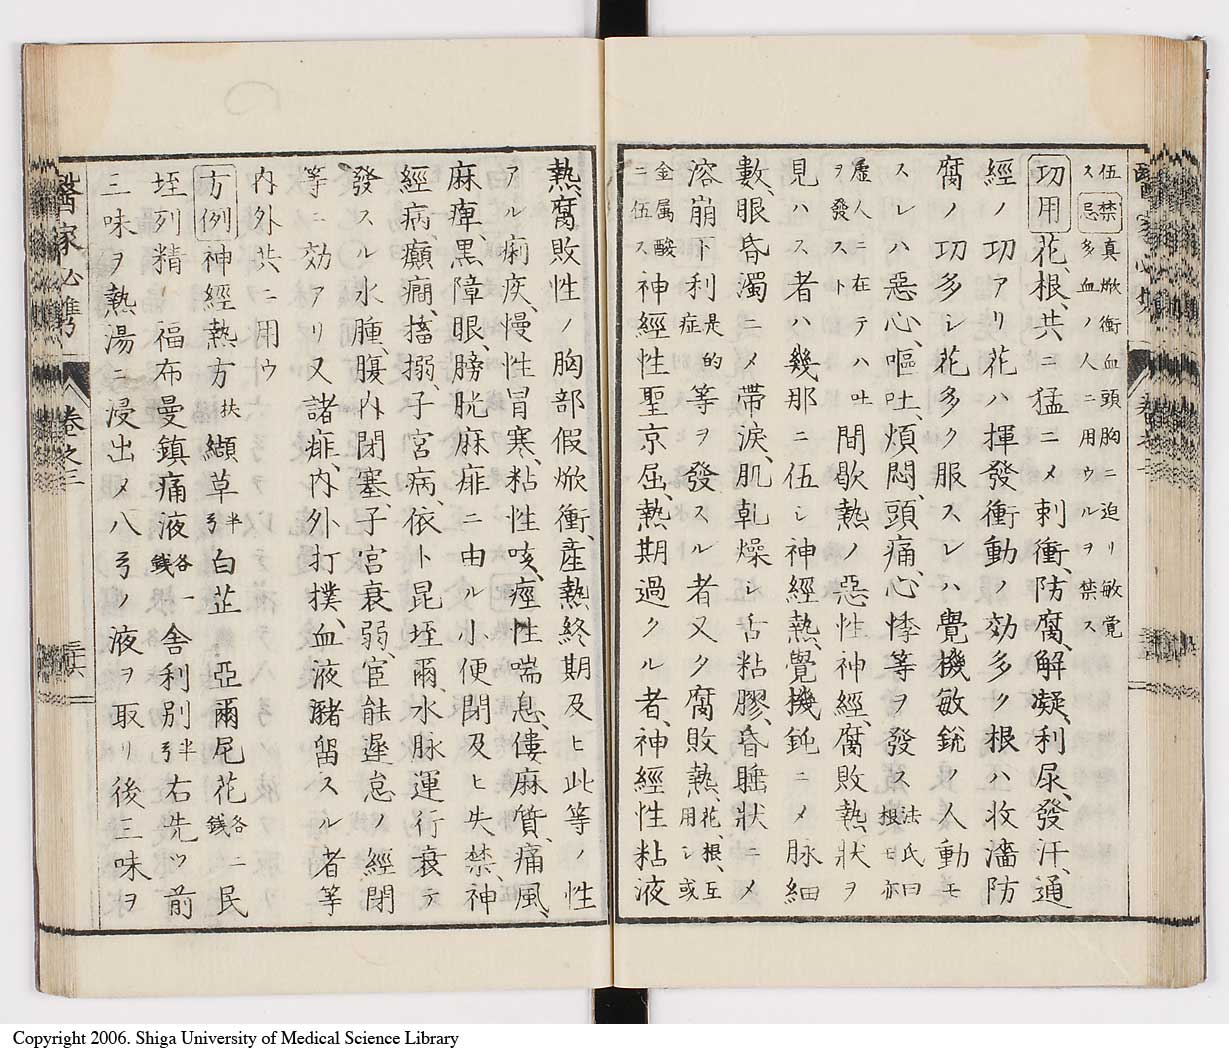 伍禁真焮衝血頭胸ニ迫リ敏覚
ス忌多血ノ人ニ用ウルヲ禁ス
功用花、根、共ニ猛ニ〆刺衝、防腐、解凝、利尿、發汗、通
經ノ功アリ花ハ揮發衝動ノ効多ク根ハ收濇防
腐ノ功多シ花多ク服スレハ覺機敏銳ノ人動モ
スレハ惡心、嘔吐、煩悶、頭痛、心悸等ヲ發ス法氏曰根モ亦
虛人ニ在テハ吐ヲ發スト間歇熱ノ惡性神經、腐敗熱狀ヲ
見ハス者ハ幾那ニ伍シ神經熱、覺機鈍ニ〆脉細
數、眼昏濁ニ〆帶淚、肌乾燥シ舌粘膠、昏睡狀ニ〆
溶崩下利症是的等ヲ發スル者又ク腐敗熱、花、根、互用シ或
金属酸ニ伍ス神經性聖京屈、熱期過クル者、神經性粘液
熱、腐敗性ノ胸部假焮衝、産熱終期及ヒ此等ノ性
アル痢疾、慢性冒寒、粘性咳、痙性喘息、僂麻質、痛風、
麻痺、黒障眼、膀胱麻痱ニ由ル小便閉及ヒ失禁、神
經病、癲癇、搐搦、子宮病、依卜昆垤爾、水脉運行衰テ
發スル水腫、腹内閉塞、子宮衰弱、官能遲怠ノ經閉
等ニ効アリ又諸痱、内外打撲、血液瀦留スル者等
内外共ニ用ウ
方例神經熱方扶 纈草半弓白芷 亞爾尾花各銭二民
垤列精 福布曼鎮痛液各銭一舎利別半弓右先ツ前
三味ヲ熱湯ニ浸出〆八弓ノ液ヲ取リ後三味ヲ
醫家必携 卷之三
Copyright 2006. Shiga University of Medical Science Library